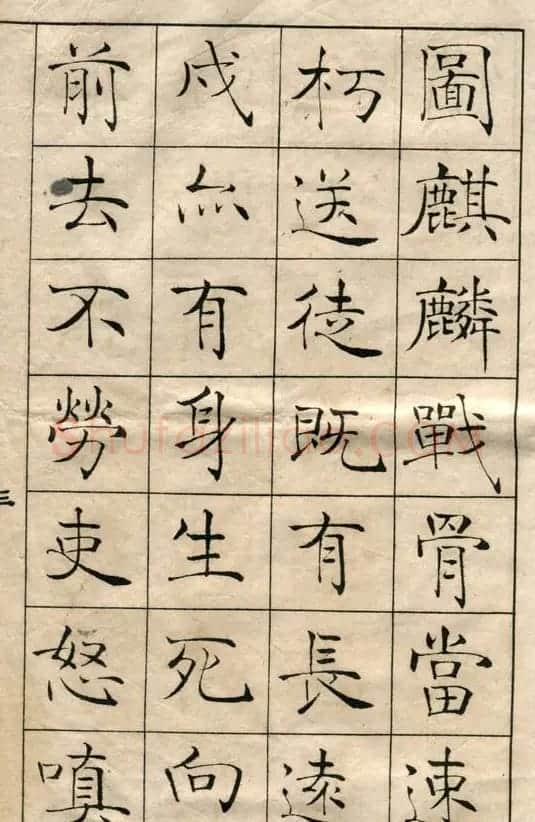 圖麒麟戰骨當速
朽送徒既有長遠
戍亦有身生死向
前去不勞吏怒嗔
三